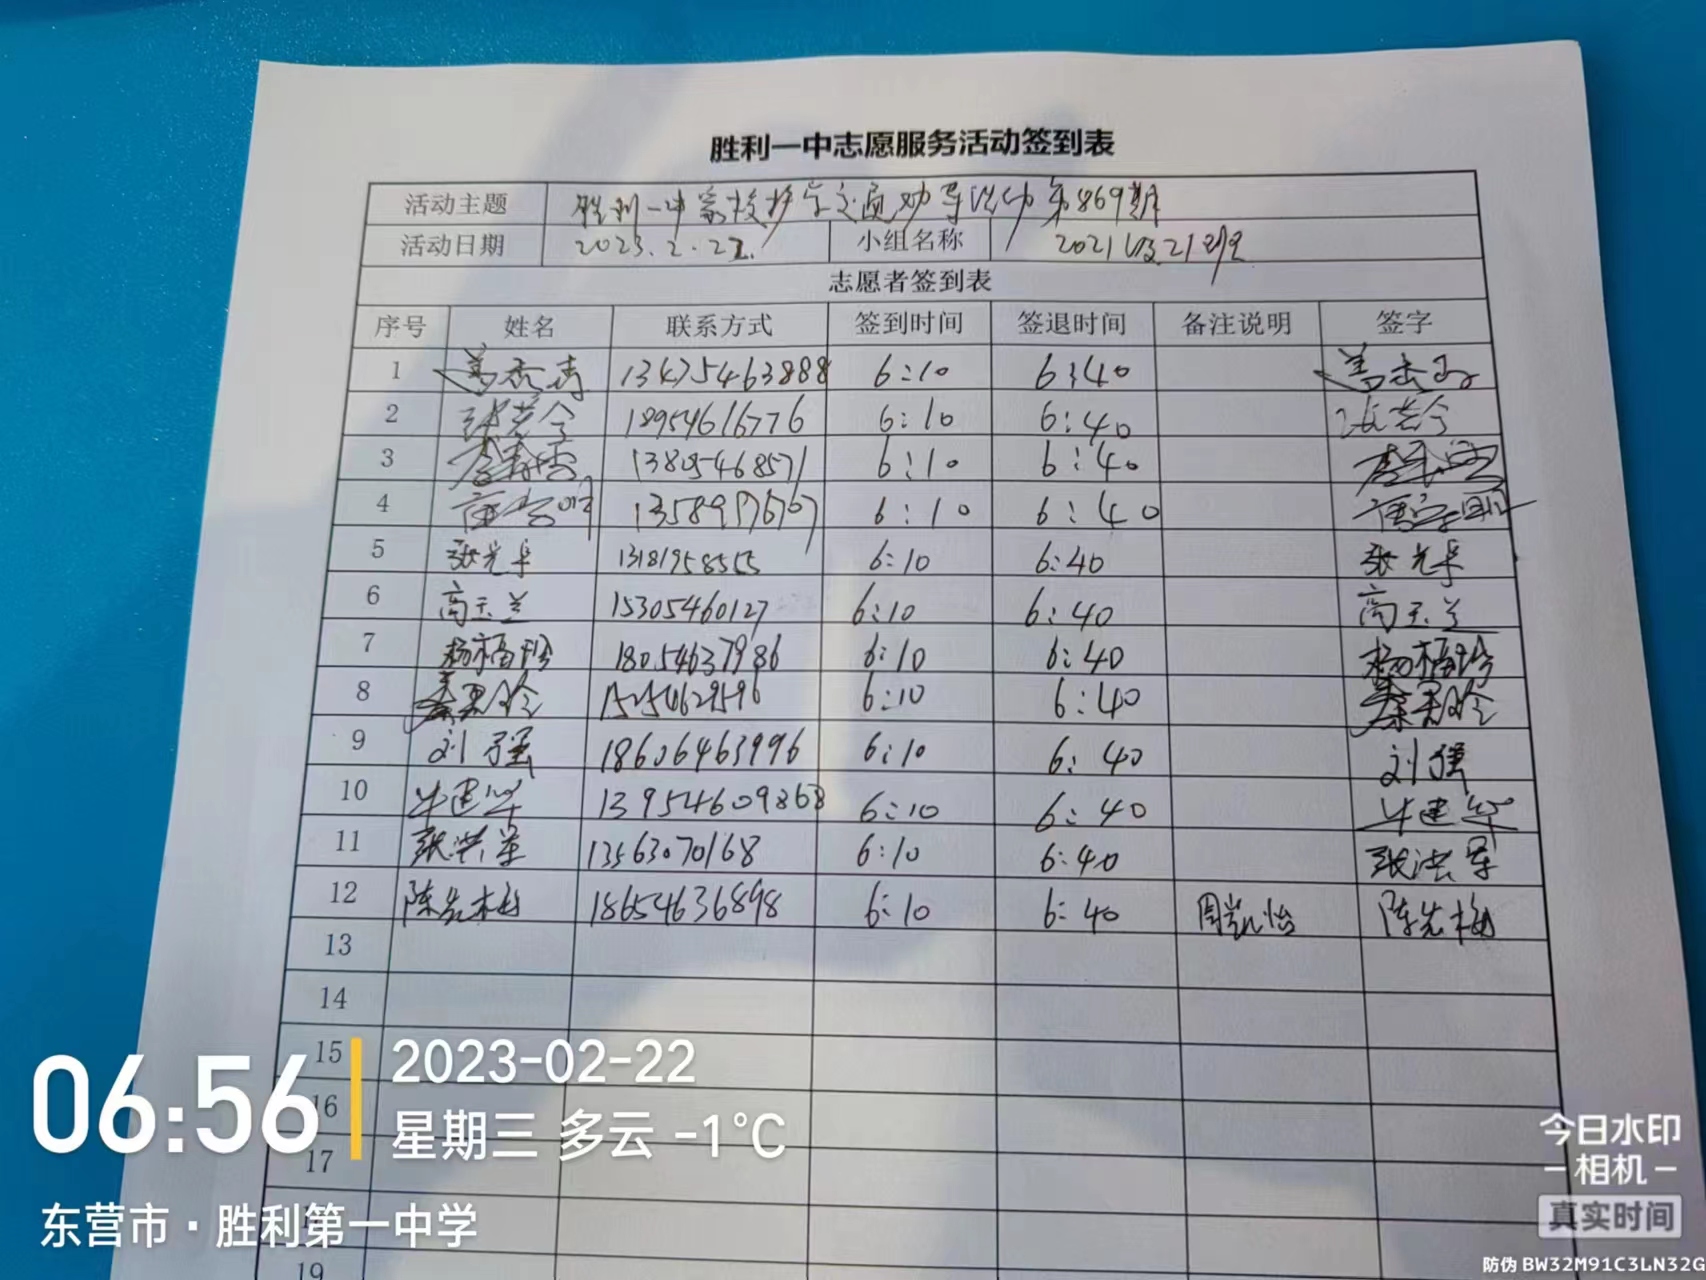 胜利一中志愿服务活动签到表
活动主题 胜利一中家校护学交通劝导活动第869期
活动日期 2023.2.22. 小组名称 2021级21班
志愿者签到表
序号 姓名 联系方式 签到时间 签退时间 备注说明 签字
1 13475463888 6:10 6:40
2 18954616776 6:10 6:40
3 13805468571 6:10 6:40
4 13589976767 6:10 6:40
5 张光华 13181958555 6:10 6:40 张光华
6 高玉兰 15305460127 6:10 6:40 高玉兰
7 杨福珍 18054637986 6:10 6:40 杨福珍
8 秦果玲 15254629596 6:10 6:40 秦果玲
9 刘强 18606463996 6:10 6:40 刘强
10 牛建华 13954609868 6:10 6:40 牛建华
11 张洪军 13563070168 6:10 6:40 张洪军
12 陈先梅 18654636898 6:10 6:40 周凯怡 陈先梅
13
14
15
16
17
19
06:56
2023-02-22
星期三 多云 -1°C
东营市·胜利第一中学
今日水印
-相机-
真实时间
防伪 BW32M91C3LN32G